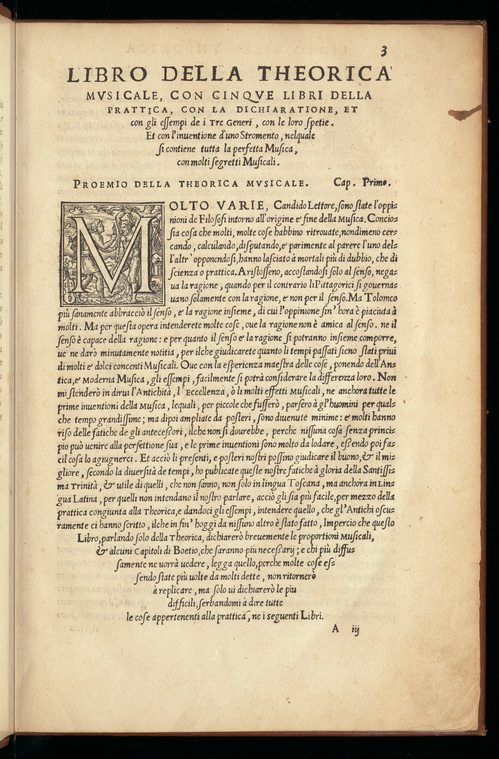 3
LIBRO DELLA THEORICA
MVSICALE, CON CINQVE LIBRI DELLA
PRATTICA, CON LA DICHIARATIONE, ET
con gli essempi de i Tre Generi, con le loro spetie.
Et con l'inuentione d'uno Stromento, nelquale
si contiene tutta la perfetta Musica,
con molti segretti Musicali.
PROEMIO DELLA THEORICA MVSICALE. Cap. Primo.
MOLTO VARIE, Candido Lettore, sono state l'oppi-
nioni de Filosofi intorno all'origine e' fine della Musica. Concios
sia cosa che molti, molte cose habbino ritrouate, nondimeno cer-
cando, calculando, disputando, e' parimente al parere l'uno del-
l'altr' opponendosi, hanno lasciato à mortali più di dubbio, che di
scienza o prattica. Aristosseno, accostandosi solo al senso, nega-
ua la ragione, quando per il contrario li Pittagorici si gouerna-
uano solamente con la ragione, e' non per il senso. Ma Tolomeo
più sanamente abbracciò il senso, e' la ragione insieme, di cui l'oppinone sin' hora è piaciuta à
molti. Ma per questa opera intenderete molte cose, oue la ragione non è amica al senso, ne il
senso è capace della ragione: e per quanto il senso e' la ragione si potranno insieme comporre,
ue ne darò minutamente notitia, per ilche giudicarete quanto li tempi passati sieno stati priui
di molti e' dolci concenti Musicali. Oue con la esperienza maestra delle cose, ponendo dell'An-
tica, e' Moderna Musica, gli essempi, facilmente si potrà considerare la differenza loro. Non
mi stenderò in dirui l'Antichità, l'Eccellenza, ò li molti effetti Musicali, ne anchora tutte le
prime inuentioni della Musica, lequali, per piccole che fussero, parsero à gl'huomini per qual-
che tempo grandissime; ma dipoi ampliate da posteri, sono diuenute minime: e' molti hanno
riso delle fatiche de gli antecessori, ilche non si dourebbe, perche nissuna cosa senza princi-
pio può uenire alla perfettione sua, e le prime inuentioni sono molto da lodare, essendo poi fa-
cil cosa lo agiugnerci. Et acciò li presenti, e posteri nostri possino giudicare il buono, & il mi-
gliore, secondo la diuersità de tempi, ho publicate queste nostre fatiche à gloria della Santissi-
ma Trinità, & utile di quelli, che non sanno, non solo in lingua Toscana, ma anchora in Lin
gua Latina, per quelli non intendano il nostro parlare, acciò gli sia più facile, per mezzo della
prattica congiunta alla Theorica, e dandoci gli essempi, intendere quello, che gl'Antichi oscu-
ramente ci hanno scritto, ilche in sin' hoggi da nissuno altro è stato fatto, Impercio che questo
Libro, parlando solo della Theorica, dichiarerò breuemente le proportioni Musicali,
& alcuni Capitoli di Boetio, che saranno più necessarij; e chi più diffus
samente ne uorrà uedere, legga quello, perche molte cose es-
sendo state più uolte da molti dette, non ritornerò
à replicare, ma solo ui dichiarerò le piu
difficili, serbandomi à dire tutte
le cose appertenenti alla prattica, ne i seguenti Libri.
A iij